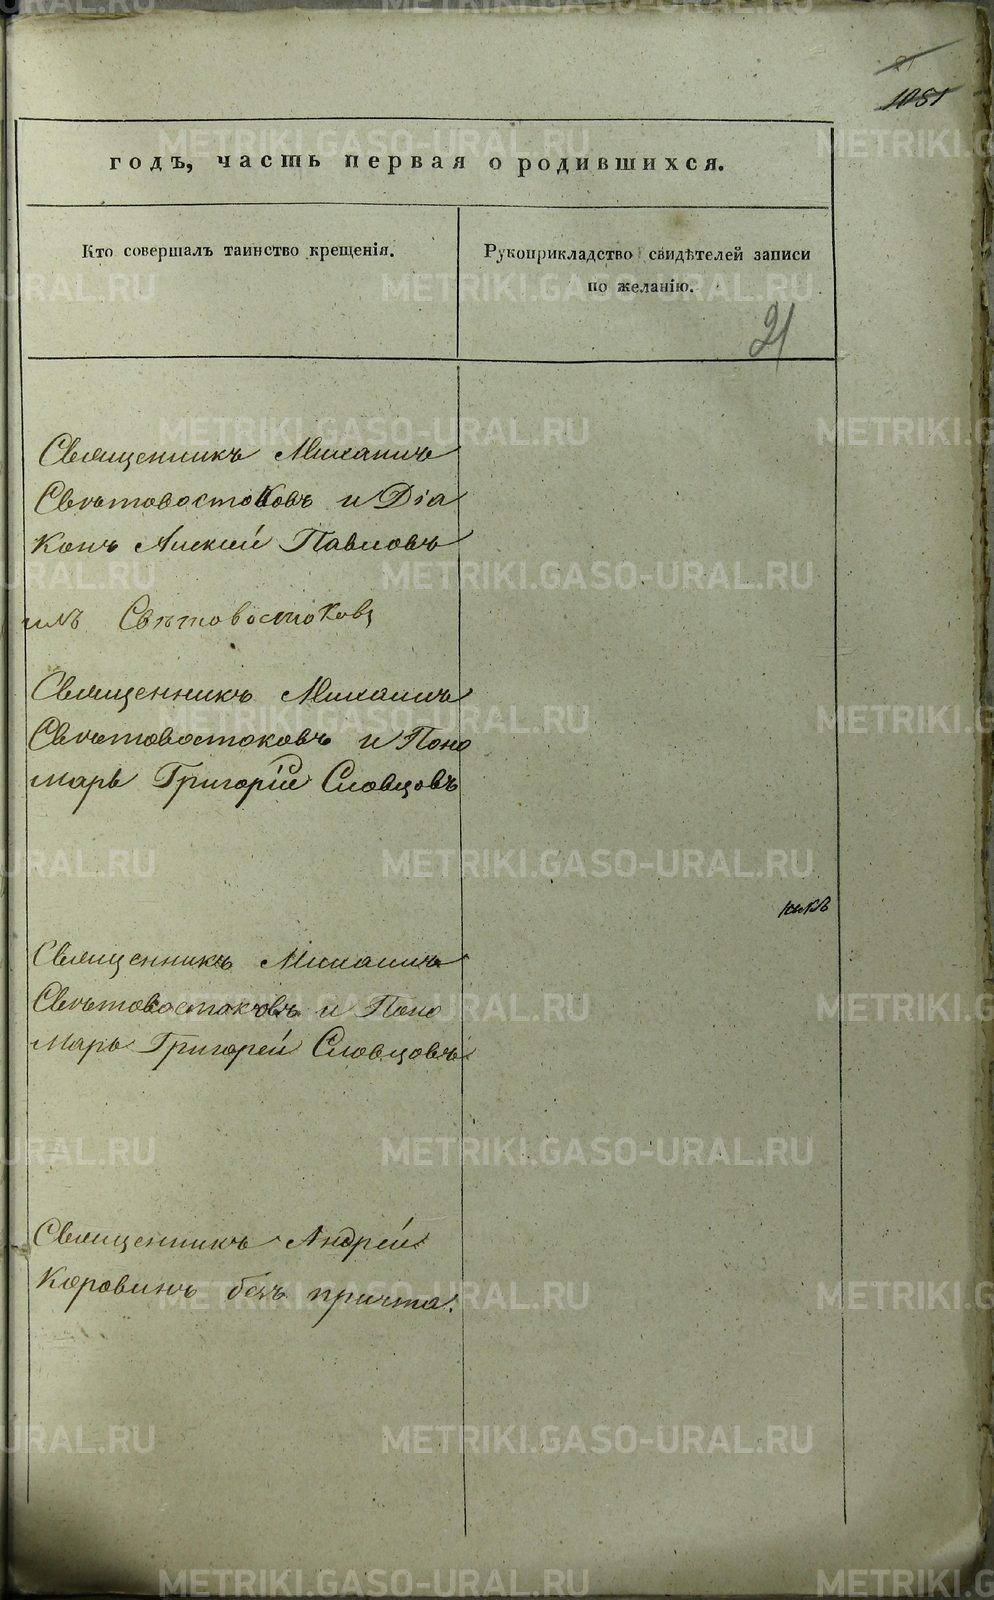 1081
годъ, часть первая о родившихся.
Кто совершалъ таинство крещенія.
Рукоприкладство свидѣтелей записи
по желанію.
21
Священникъ Михаилъ
Свѣтовостоковъ и Діа
конъ Алексѣй Павловъ
Свѣтовостоковъ
Священникъ Михаилъ
Свѣтовостоковъ и Поно
марь Григорій Словцовъ
Священникъ Михаилъ
Свѣтовостоковъ и Поно
марь Григорей Словцовъ
Священникъ Андрей
Коровинъ безъ причта.
METRIKI.GASO-URAL.RU